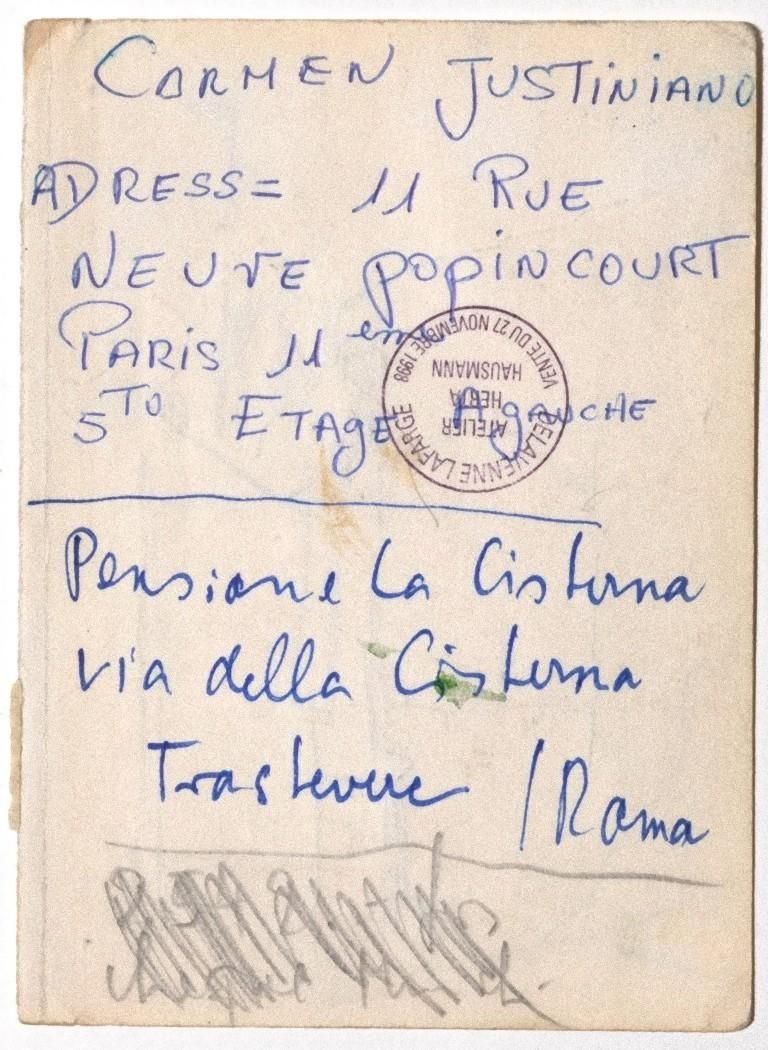 CARMEN JUSTINIANO
ADRESS= 11 RUE
NEUVE POPINCOURT
PARIS 11 eme
5TO ETAGE A gAUCHE
DELAVENNE LAFARGE
ATELIER
HERTA
HAUSMANN
VENTE DU 27 NOVEMBRE 1998
Pensione La Cisterna
via della Cisterna
Trastevere / Roma